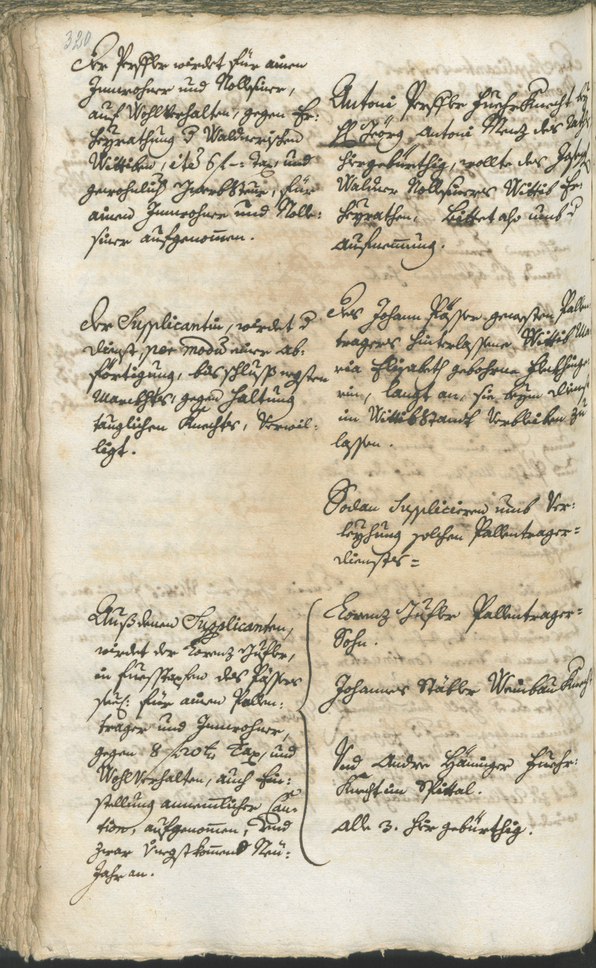 320
Der Presser wirdet für ainen
Innwohner und Nollfierer,
auf Wohlverhalten, gegen Er:
heyrathung d Waldnerischen
Wittiben, 6 fl: Tax, und
gewohnlich, für
ainen Innwohner und Noll:
fierer aufgenommen.
Antoni Presser Fuehr Knecht bey
H Geörg Antoni Menz des Raths
hie gebürthig, wollte des Joseph
Waldner Nollfierers Wittib Er:
heyrathen. Bittet also umb d
aufnemmung.
Der Supplicantin, wirdet d
dienst, per modum einer ab:
förtigung, bis schlusß negsten
Marckhts, gegen haltung
tauglichen Knechts, verwil:
ligt.
Des Johann gewesten Pallen
tragers hinterlassene Wittib Ma
ria Elisabeth gebohrne
rin, langt an, sie beym dienst
im Wittibstandt verbleiben zu
lassen.
Sodan Supplicieren umb Ver:
leyhung solchen Pallentrager=
dienstes=
Auß denen Supplicanten,
wirdet der Lorenz
in fuesstapfen des
für ainen Pallen:
trager und Innwohner,
gegen 8 Tax, und
Wohlverhalten, auch Ein:
stellung annemlicher Cau
tion, aufgenommen, und
zwar negst kommend Neu:
Jahr an.
Lorenz Pallentrager=
Sohn.
Johannes Weinbau Knecht
Und Andre Fuehr:
Knecht im Spittal.
alle 3. hie gebürthig.